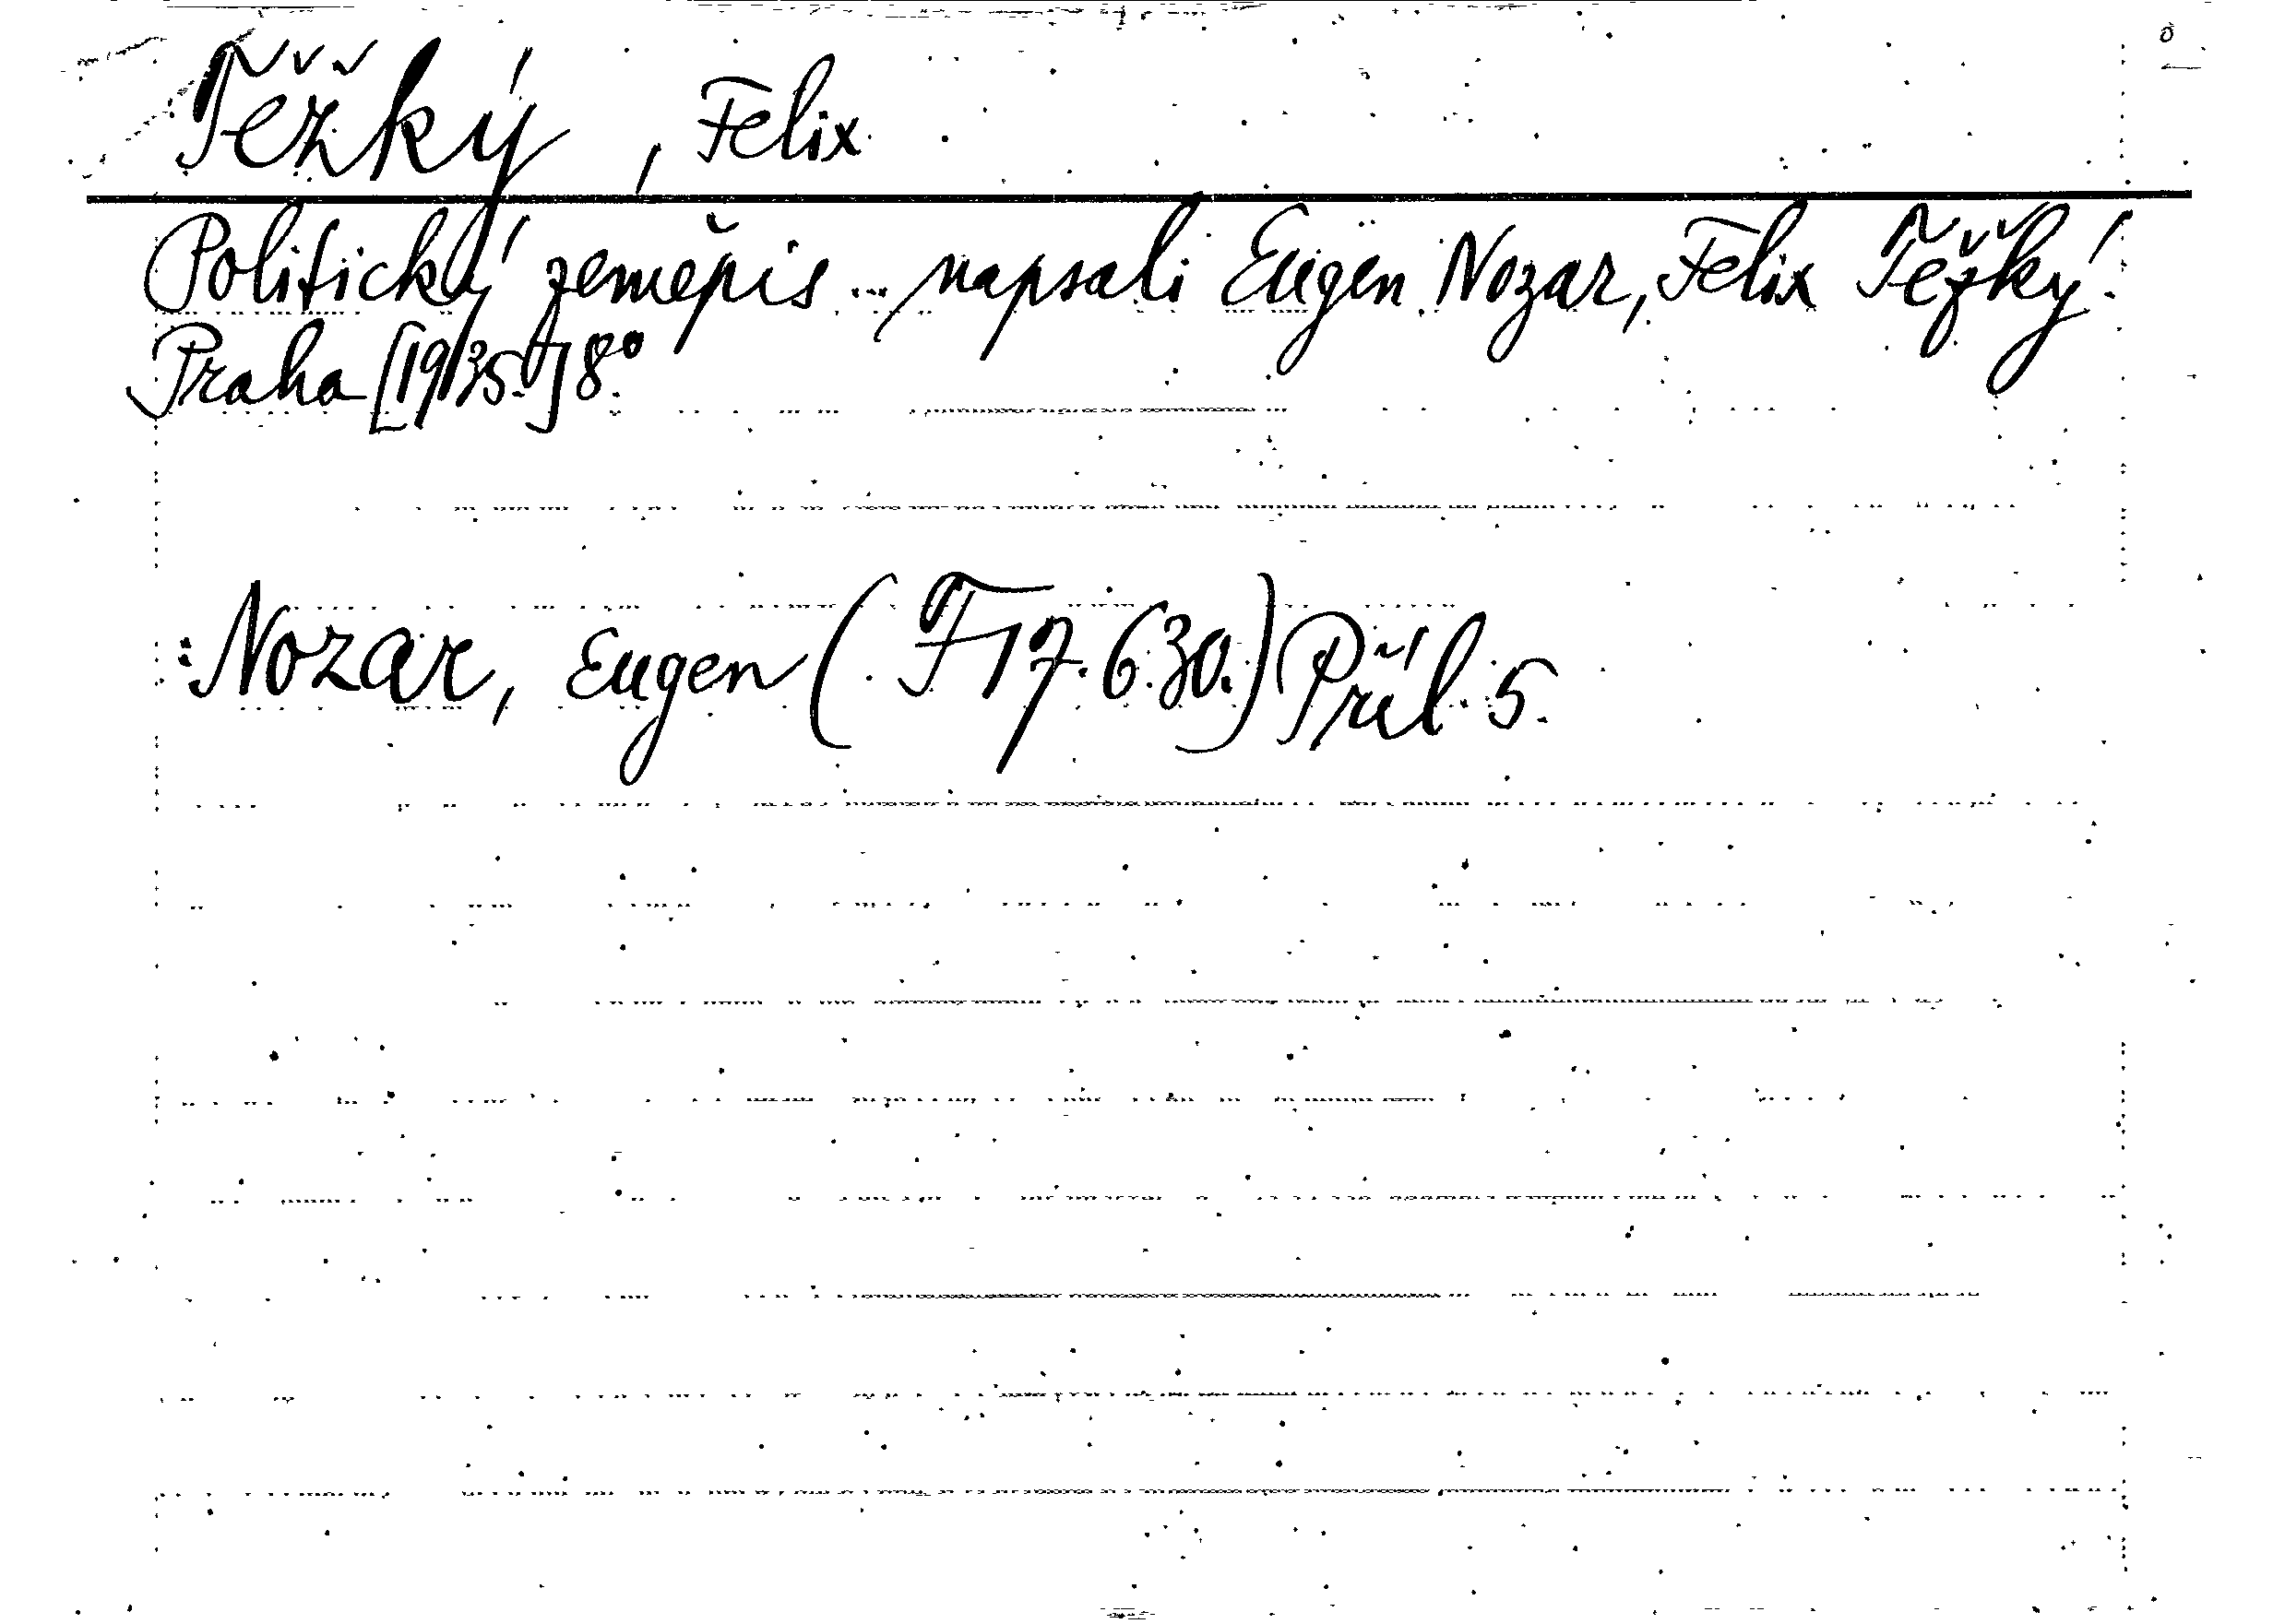 Těžký, Felix
Politický zeměpis ... napsali Eugen Nozar, Felix Těžký.
Praha [1935.] 8°.
: Nozar, Eugen (F 17.630.) Příl. 5.